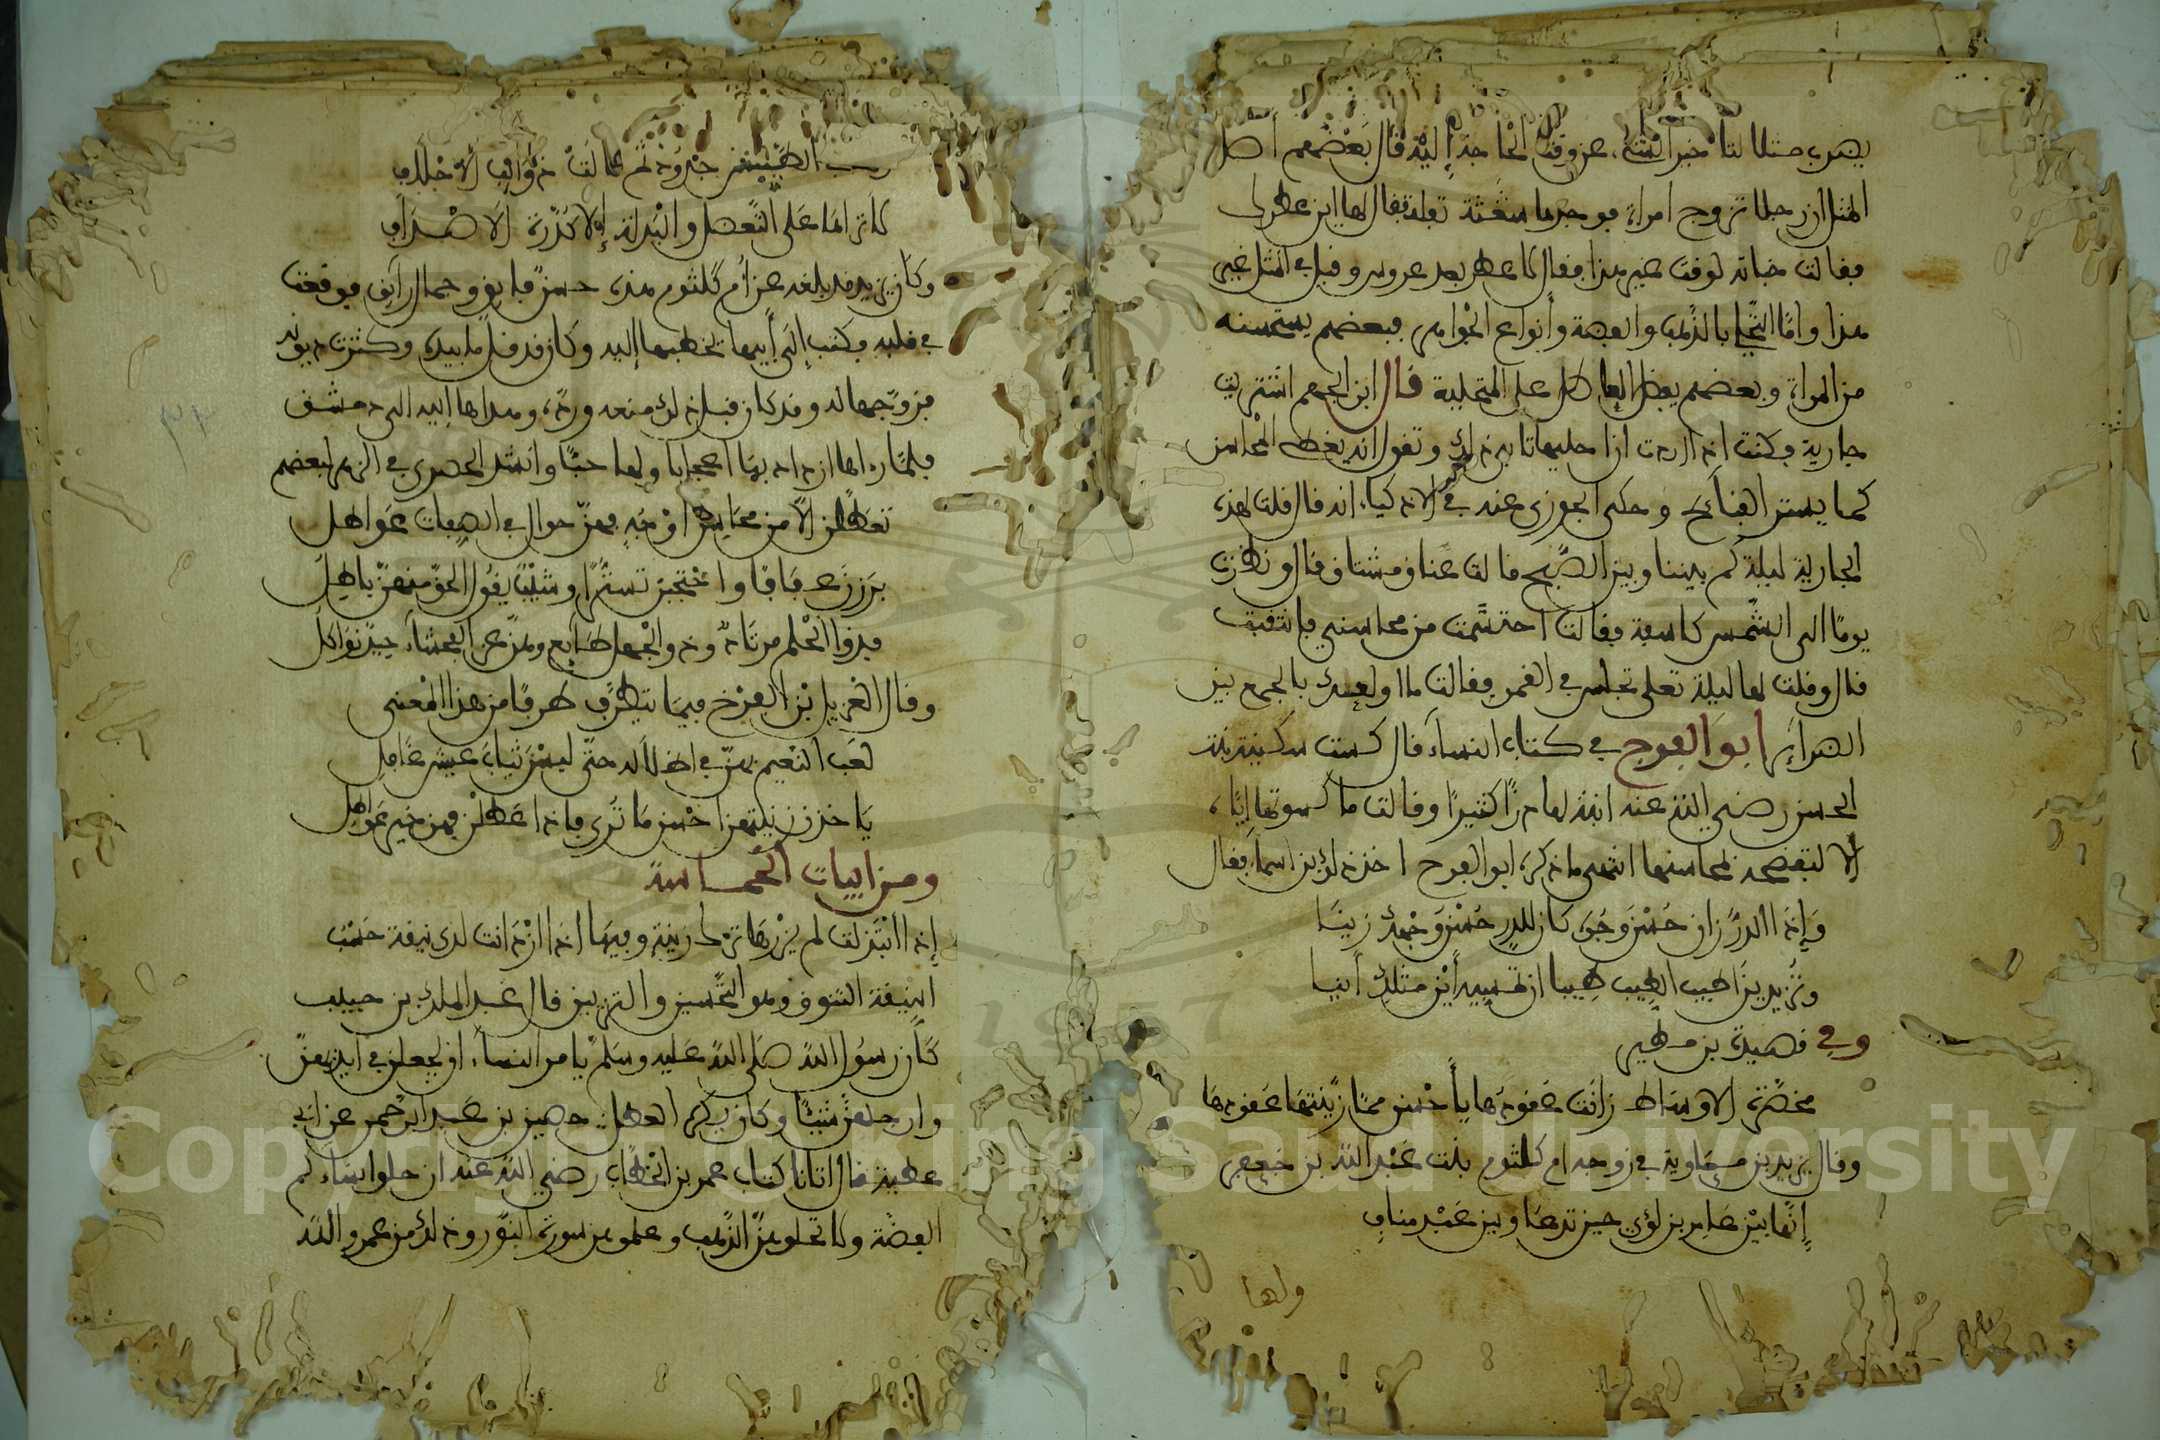 يضرب مثلا لتأخير الشئ عن وقت الحاجة إليه قال بعضهم أصل
المثل ان رجلا تزوج امراة فوجدها شعثة تفلة فقال لها اين عطرك
فقالت خباته لوقت غير هذا فقال لا عطر بعد عروس وقيل في المثل غير
هذا واما التحلي بالذهب والفضة وأنواع الجواهر فبعضهم يستحسنه
من المراة وبعضهم يفضل العاطل على المتحلية قال ابن الجهم اشتريت
جارية فكنت اذا اردت ان احليها تابى ذلك وتقول انه يغطى المحاسن
كما يستر القبائح وحكى الجوزي عنه في الاذكياء انه قال قلت لهذه
الجارية ليلة كم بيننا وبين الصبح قالت عناق مشتاق قال ونظرت
يوما الى الشمس كاسفة فقالت احتشمت من محاسني فانتقبت
قال وقلت لها ليلة تعلى نجلس في القمر فقالت ما اولعك بالجمع بين
الضرائر ابو الفرج في كتاب النساء قال كست سكينة بنت
الحسين رضي الله عنه ابنة لها درا كثيرا وقالت ما كسوتها اياه
الا لتفضحه بمحاسنها انتهى ما ذكره ابو الفرج اخذ ذلك بن اسما فقال
وإذا الدر زان حسن وجوه كان للدر حسن وجهك زينا
وتزيدين اطيب الطيب طيبا ان تمسيه أين مثلك أينا
وفي قصيدة بن مطير
مخصرة الاوساط زانت عقودها بأحسن مما زينتها عقودها
وقال يزيد بن معاوية في زوجه ام كلثوم بنت عبد الله بن جعفر
إنها بين عامر بن لؤي حين تدعا وبين عبد مناف
ولها
ولها في الطيبين جدود ثم نالت ذوائب الاخلاف
لا تراها على التعطل والبذلة إلا كدرة الاصداف
وكان يزيد قد بلغه عن أم كلثوم هذه حسن فايق وجمال رايق فوقعت
في قلبه فكتب إلى أبيها يخطبها إليه وكان قد قل ما بيده وكثرت ديونه
فزوجها له وقد كان قبل ذلك منعه ورده وهداها إليه الى دمشق
فلما راها ازداد بها اعجابا ولها حبا وانشد الحصري في الزهر لبعضهم
تعطلن إلا من محاسن اوجه فهن حوال في الصفات عواطل
برزن عفافا واحتجبن تسترا وشيب بقول الحق منهن باطل
فذوا الحلم مرتاد وذو الجهل طامع وهن عن الفحشاء حيد نواكل
وقال الغزيل بن الفرخ فيما يتطرف طرفا من هذا المعنى
لعب النعيم بهن في اظلاله حتى لبسن ثياب عيش غافل
ياخذن زينتهن احسن ما ترى فإذا عطلن فهن غير عواطل
ومن ابيات الحماسة
إذا ابتذلت لم يزرها ترك زينة وفيها اذا ازدانت لدى نيقة حسب
النيقة التنوق وهو التحسين والتزيين قال عبد الملك بن حبيب
كان رسول الله صلى الله عليه وسلم يامر النساء ان يجعلن في ايديهن
وارجلهن شيئا وكان يكره العطل حصين بن عبد الرحمن عن ابي
عطية قال اتانا كتاب عمر بن الخطاب رضي الله عنه ان حلوا نساءكم
الفضة ولا تحلوهن الذهب وعلموهن سورة النور وذلك من عمر والله